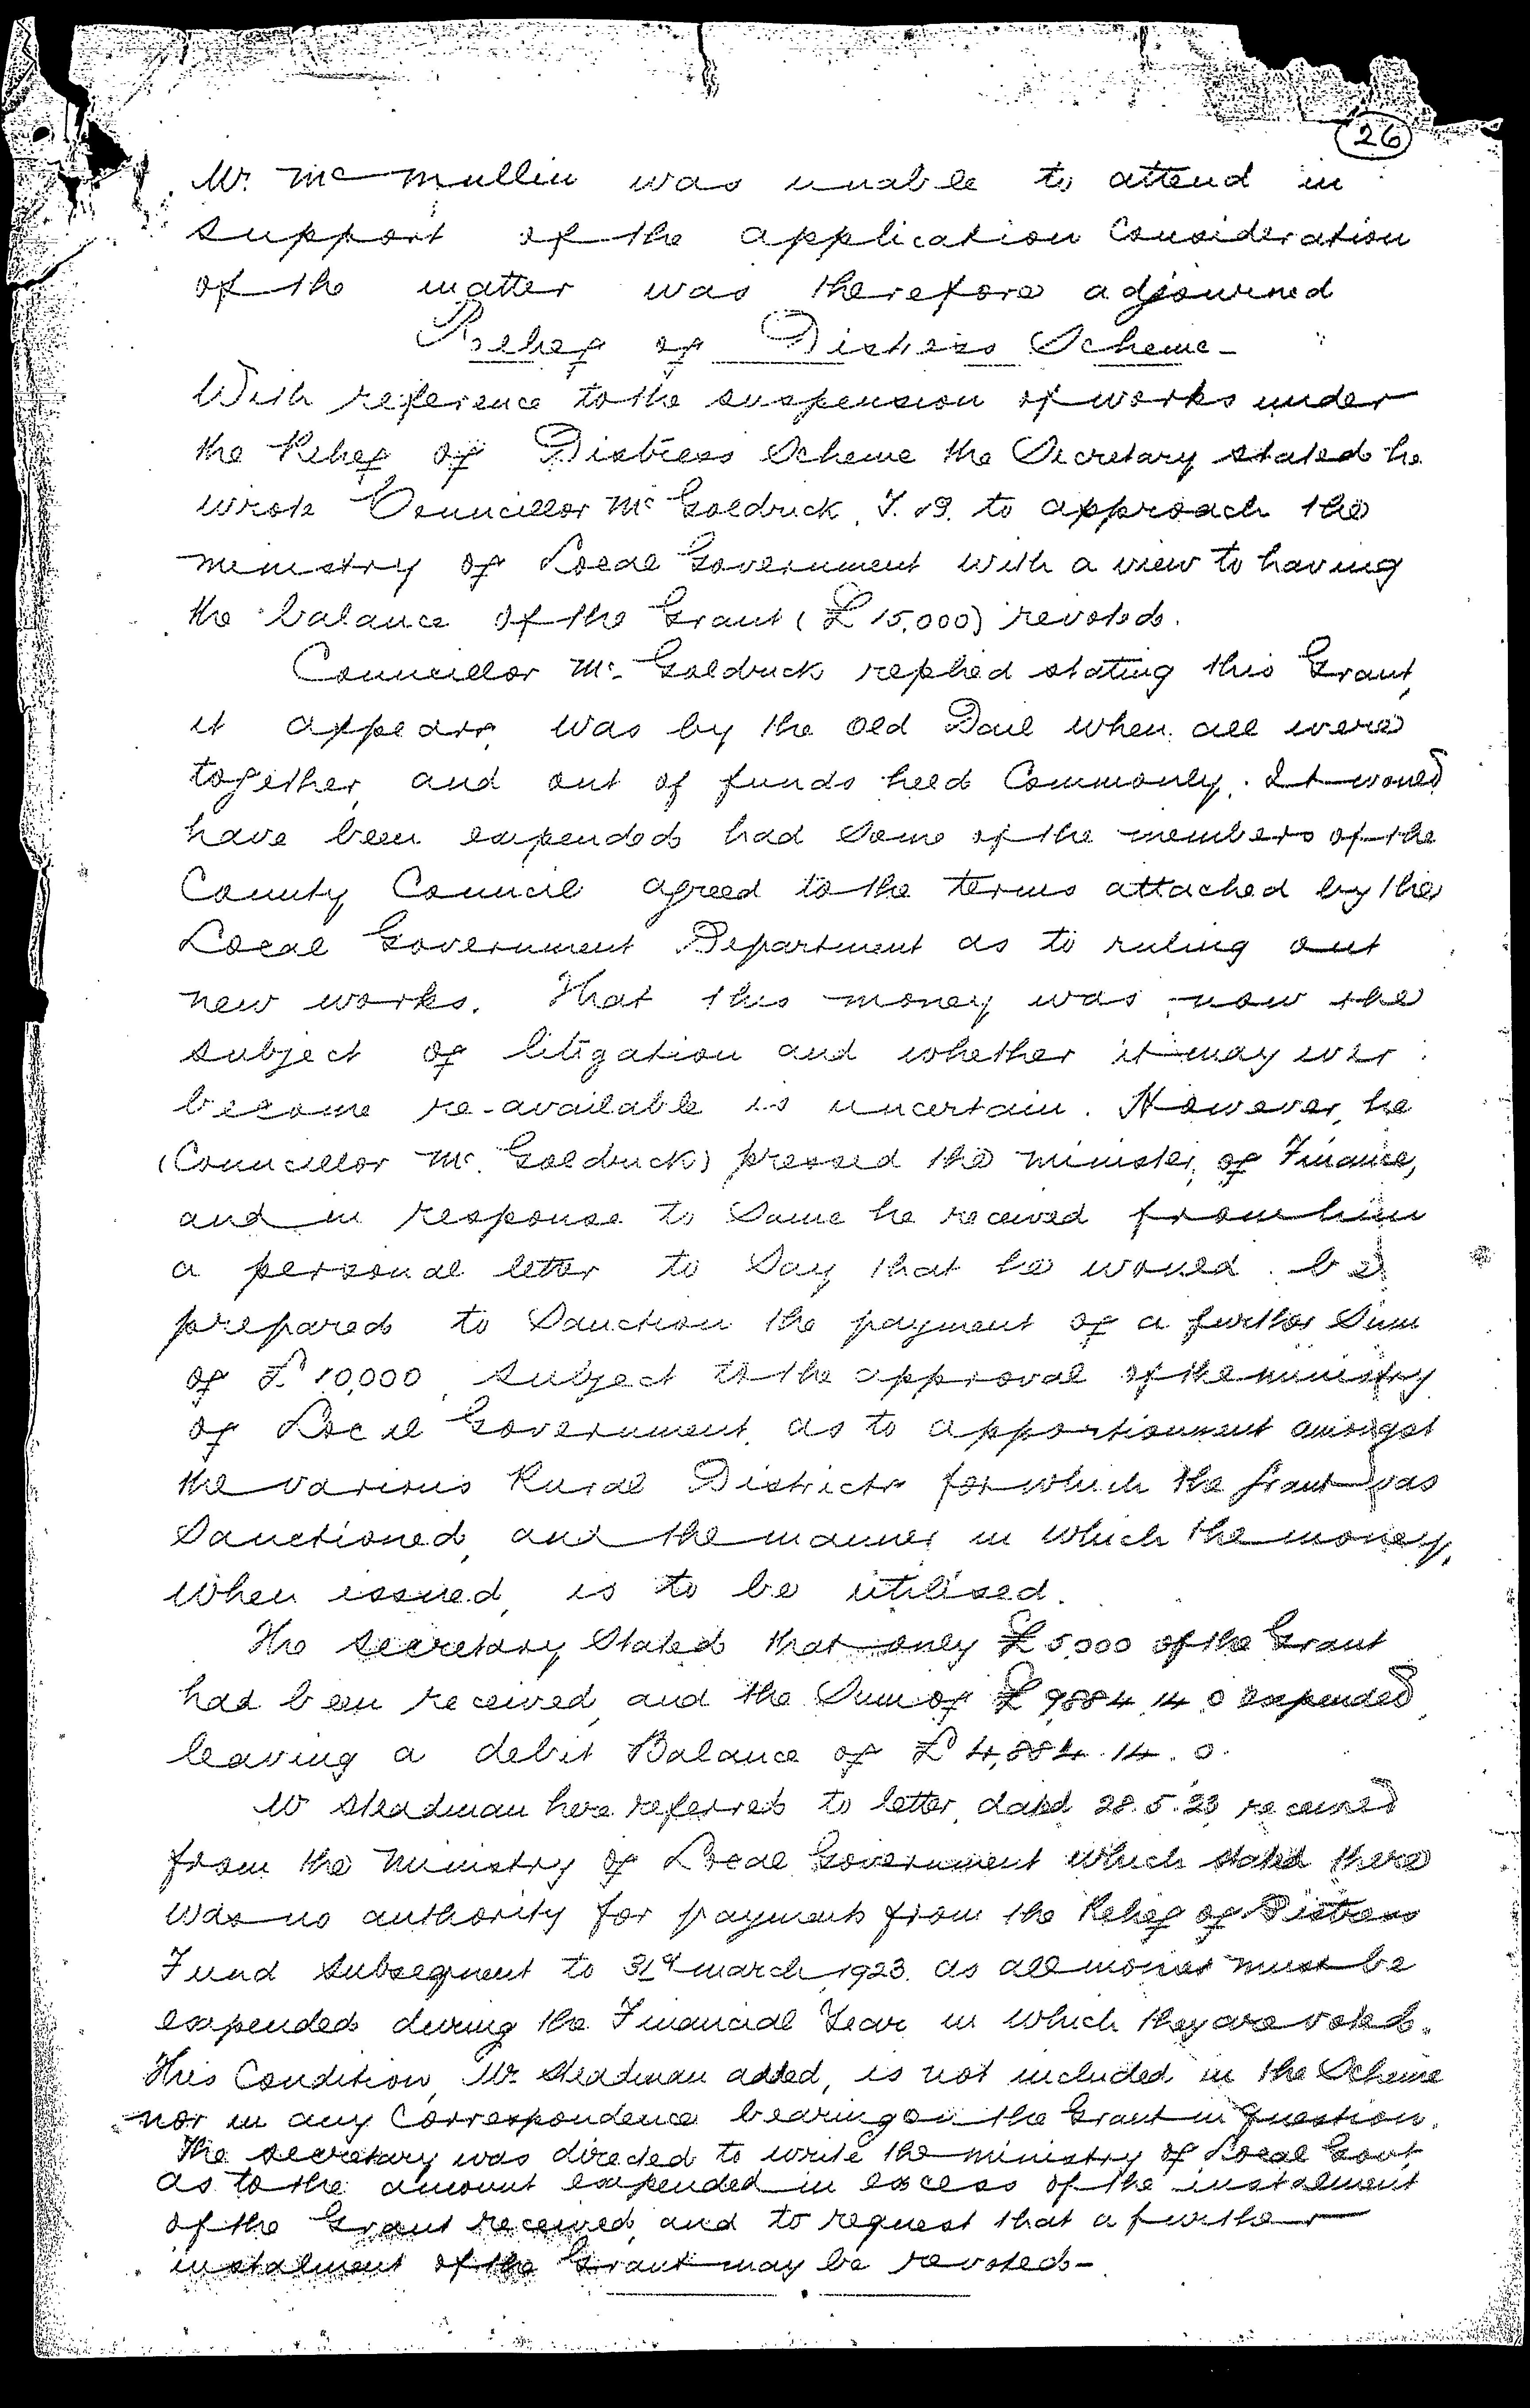 26
Mr. McMullin was unable to attend in
support of the application Consideration
of the matter was therefore adjourned
Relief of Distress Scheme -
With reference to the suspension of works under
the Relief of Distress Scheme the Secretary stated he
wrote Councillor McGoldrick, T.D. to approach the
Ministry of Local Government with a view to having
the balance of the Grant (£15,000) revoted.
Councillor McGoldrick replied stating this Grant,
it appears, was by the Old Dail when all were
together, and out of funds held Commonly. It would
have been expended had some of the members of the
County Council agreed to the terms attached by the
Local Government Department as to ruling out
new works. That this money was now the
subject of litigation and whether it may ever
become re-available is uncertain. However, he
(Councillor McGoldrick) pressed the Minister of Finance,
and in response to same he received from him
a personal letter to say that he would be
prepared to sanction the payment of a further sum
of £10,000, subject to the approval of the ministry
of Local Government, as to apportionment amongst
the various Rural Districts for which the Grant was
sanctioned, and the manner in which the money,
when issued, is to be utilised.
The Secretary stated that only £5,000 of the Grant
had been received, and the sum of £9,884.14.0 expended,
leaving a debit Balance of £4,884.14.0.
Mr Steadman here referred to letter, dated 28.5.23, received
from the Ministry of Local Government which stated there
was no authority for payments from the Relief of Distress
Fund subsequent to 31st March, 1923, as all monies must be
expended during the Financial Year in which they are voted.
This Condition, Mr. Steadman added, is not included in the Scheme
nor in any Correspondence bearing on the Grant in question.
The Secretary was directed to write the Ministry of Local Govt.
as to the amount expended in excess of the instalment
of the Grant received, and to request that a further
instalment of the Grant may be revoted -